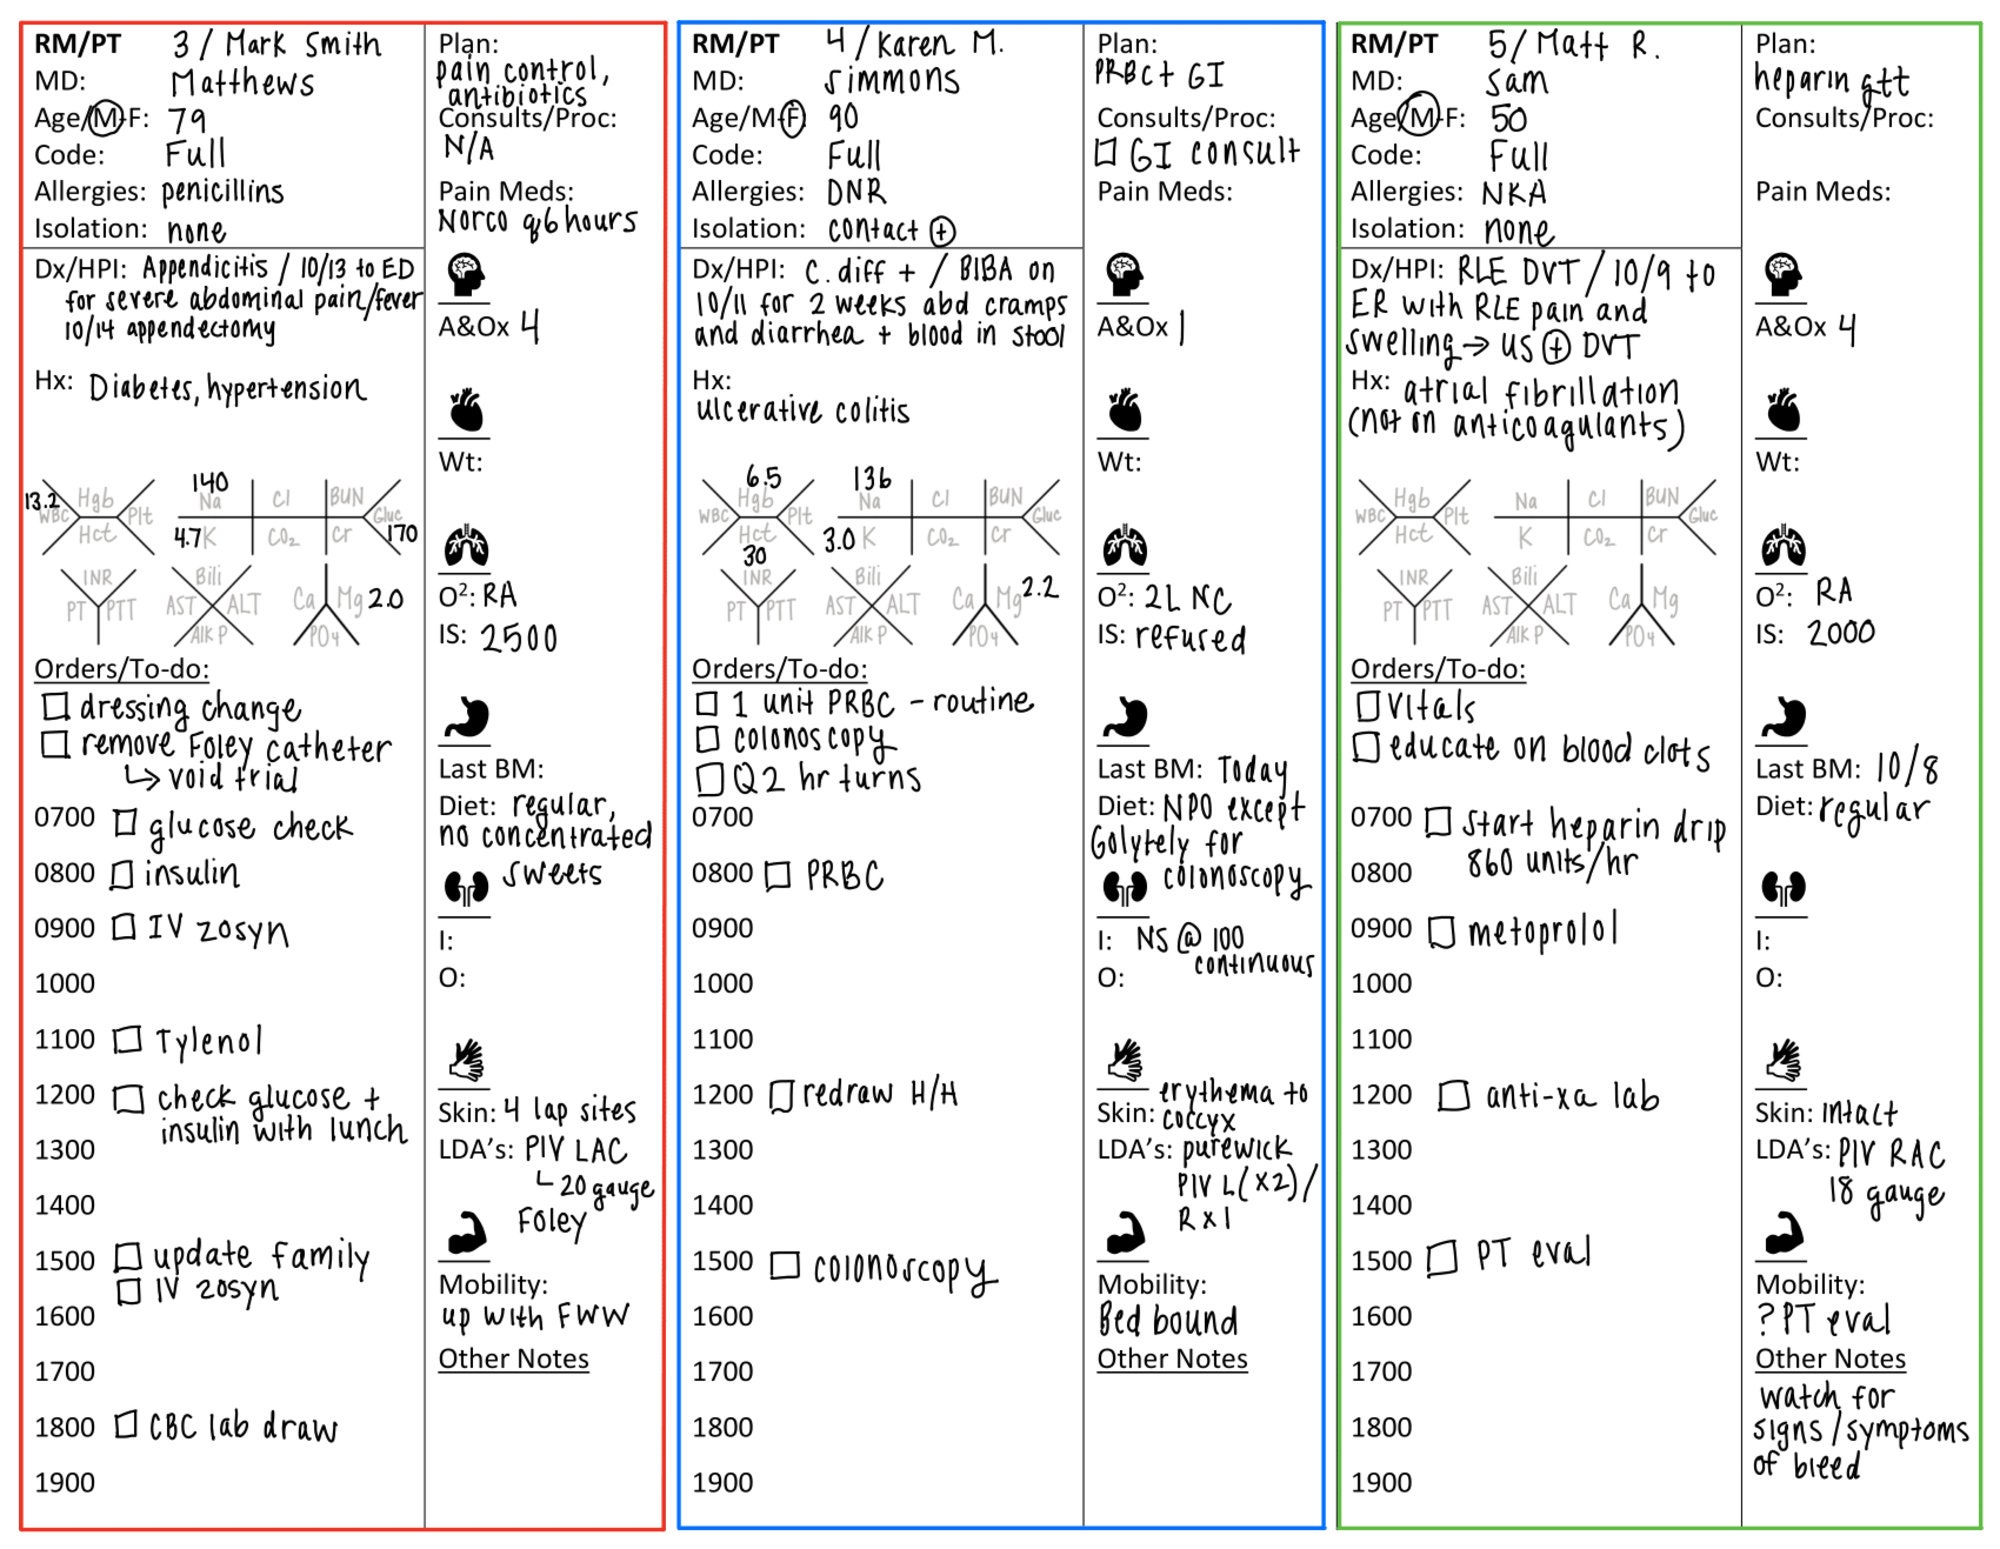 RM/PT 3 / Mark Smith
MD: Matthews
Age/M-F: 79
Code: Full
Allergies: penicillins
Isolation: none
Plan:
pain control,
antibiotics
Consults/Proc:
N/A
Pain Meds:
Norco q6 hours
Dx/HPI: Appendicitis / 10/13 to ED
for severe abdominal pain/fever
10/14 appendectomy
Hx: Diabetes, hypertension
140
13.2 WBC Hgb Plt Na Cl BUN Gluc
Hct 4.7 K CO₂ Cr 170
INR Bili
PT PTT AST ALT Ca Mg 2.0
Alk P PO4
Orders/To-do:
☐ dressing change
☐ remove Foley catheter
↳ void trial
0700 ☐ glucose check
0800 ☐ insulin
0900 ☐ IV zosyn
1000
1100 ☐ Tylenol
1200 ☐ check glucose +
insulin with lunch
1300
1400
1500 ☐ update family
☐ IV zosyn
1600
1700
1800 ☐ CBC lab draw
1900
A&Ox 4
Wt:
O²: RA
IS: 2500
Last BM:
Diet: regular,
no concentrated
sweets
I:
O:
Skin: 4 lap sites
LDA's: PIV LAC
↳ 20 gauge
Foley
Mobility:
up with FWW
Other Notes
RM/PT 4 / Karen M.
MD: Simmons
Age/M-F: 90
Code: Full
Allergies: DNR
Isolation: contact ⊕
Plan:
PRBC + GI
Consults/Proc:
☐ GI consult
Pain Meds:
Dx/HPI: C. diff + / BIBA on
10/11 for 2 weeks abd cramps
and diarrhea + blood in stool
Hx:
ulcerative colitis
6.5 136
WBC Hgb Plt Na Cl BUN Gluc
Hct 3.0 K CO₂ Cr
30
INR Bili
PT PTT AST ALT Ca Mg 2.2
Alk P PO4
Orders/To-do:
☐ 1 unit PRBC - routine
☐ colonoscopy
☐ Q2 hr turns
0700
0800 ☐ PRBC
0900
1000
1100
1200 ☐ redraw H/H
1300
1400
1500 ☐ colonoscopy
1600
1700
1800
1900
A&Ox 1
Wt:
O²: 2L NC
IS: refused
Last BM: Today
Diet: NPO except
Golytely for
colonoscopy
I: NS @ 100
continuous
O:
erythema to
Skin: coccyx
LDA's: purewick
PIV L (x2) /
R x 1
Mobility:
Bed bound
Other Notes
RM/PT 5 / Matt R.
MD: Sam
Age/M-F: 50
Code: Full
Allergies: NKA
Isolation: none
Plan:
heparin gtt
Consults/Proc:
Pain Meds:
Dx/HPI: RLE DVT / 10/9 to
ER with RLE pain and
swelling → US ⊕ DVT
Hx: atrial fibrillation
(not on anticoagulants)
WBC Hgb Plt Na Cl BUN Gluc
Hct K CO₂ Cr
INR Bili
PT PTT AST ALT Ca Mg
Alk P PO4
Orders/To-do:
☐ vitals
☐ educate on blood clots
0700 ☐ start heparin drip
860 units/hr
0800
0900 ☐ metoprolol
1000
1100
1200 ☐ anti-xa lab
1300
1400
1500 ☐ PT eval
1600
1700
1800
1900
A&Ox 4
Wt:
O²: RA
IS: 2000
Last BM: 10/8
Diet: regular
I:
O:
Skin: intact
LDA's: PIV RAC
18 gauge
Mobility:
? PT eval
Other Notes
watch for
signs/symptoms
of bleed